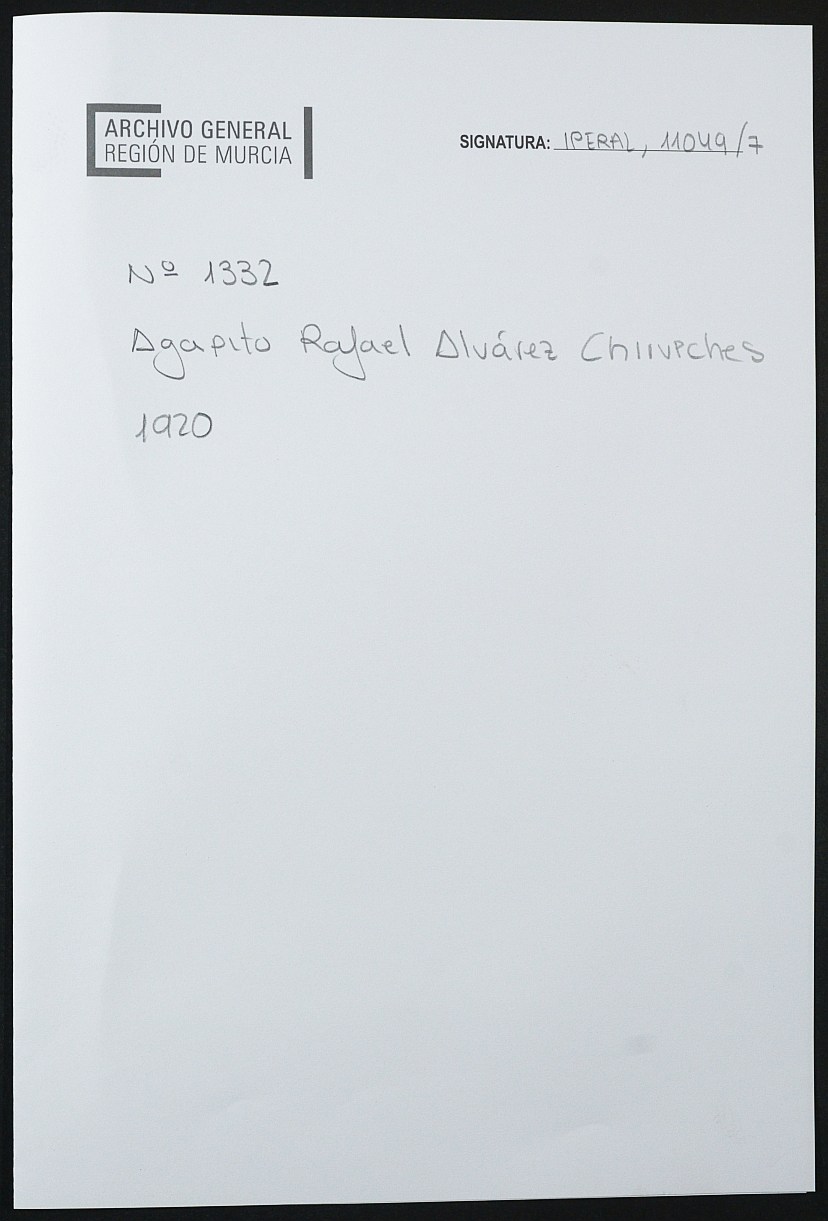 ARCHIVO GENERAL
REGIÓN DE MURCIA
SIGNATURA: IPERAL, 11049/7
Nº 1332
Agapito Rafael Alvárez Chirveches
1920